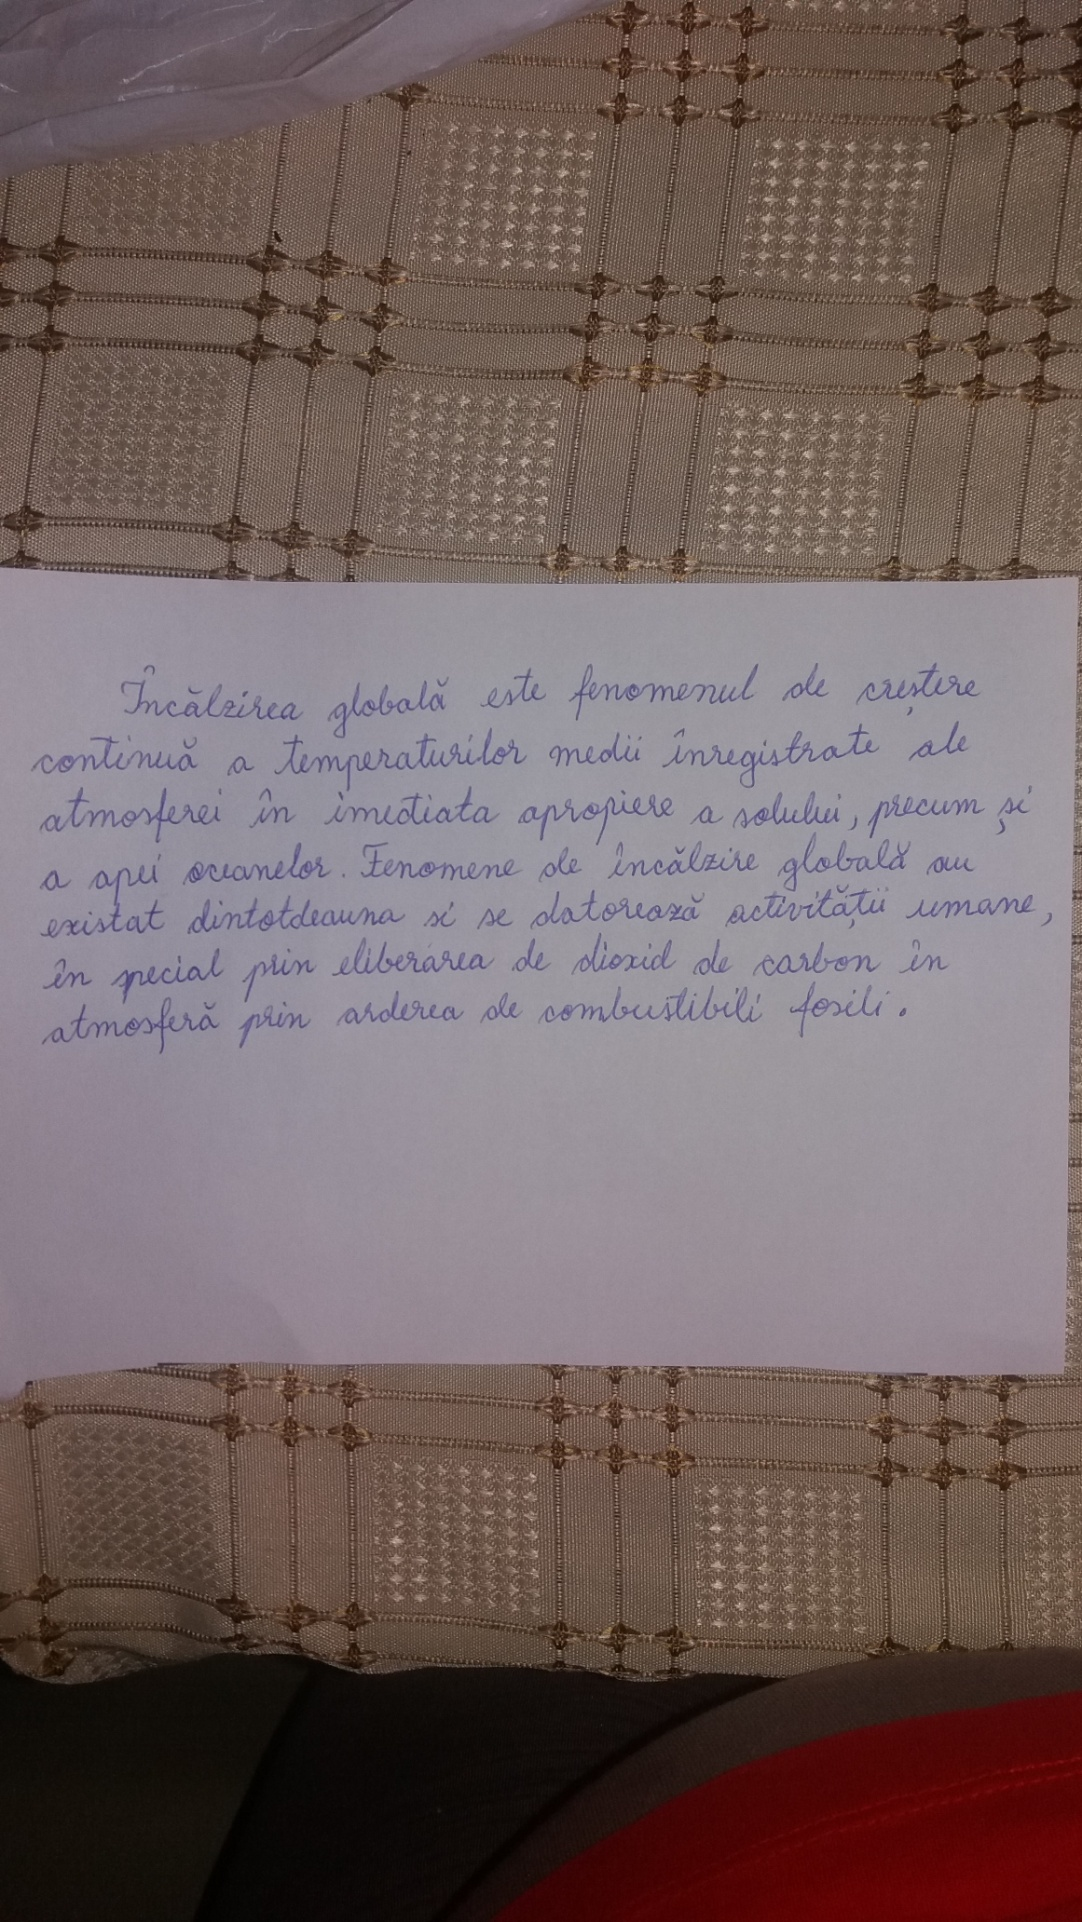 Încălzirea globală este fenomenul de creștere
continuă a temperaturilor medii înregistrate ale
atmosferei în imediata apropiere a solului, precum și
a apei oceanelor. Fenomene de încălzire globală au
existat dintotdeauna si se datorează activității umane,
în special prin eliberarea de dioxid de carbon în
atmosferă prin arderea de combustibili fosili.